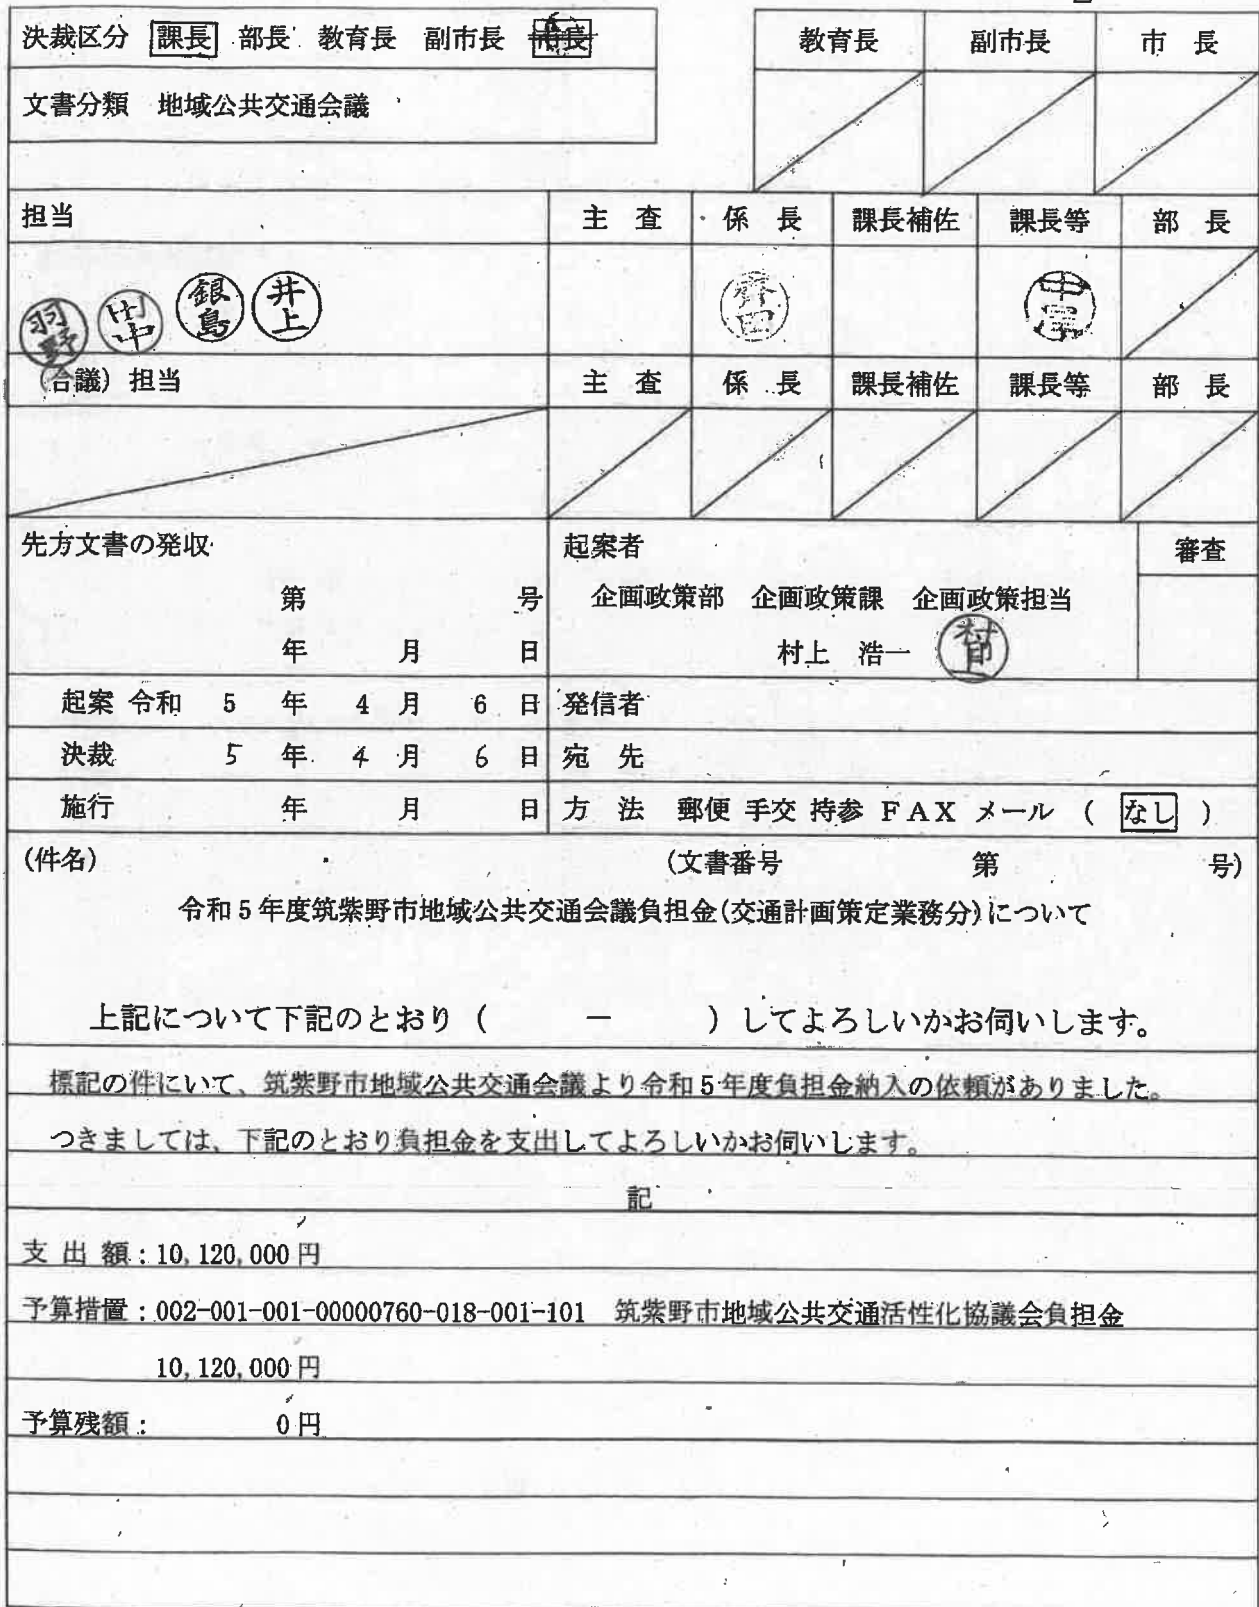 決裁区分 課長 部長 教育長 副市長 市長
文書分類 地域公共交通会議
教育長 副市長 市 長
担当 主 査 係 長 課長補佐 課長等 部 長
羽野 田中 銀島 井上 齊田
(合議) 担当 主 査 係 長 課長補佐 課長等 部 長
先方文書の発収
第 号
年 月 日
起案者
企画政策部 企画政策課 企画政策担当
村上 浩一 村上印
審査
起案 令和 5 年 4 月 6 日
発信者
決裁 5 年 4 月 6 日
宛 先
施行 年 月 日
方 法 郵便 手交 持参 FAX メール ( なし )
(件名) (文書番号 第 号)
令和5年度筑紫野市地域公共交通会議負担金(交通計画策定業務分)について
上記について下記のとおり ( ー ) してよろしいかお伺いします。
標記の件にいて、筑紫野市地域公共交通会議より令和5年度負担金納入の依頼がありました。
つきましては、下記のとおり負担金を支出してよろしいかお伺いします。
記
支 出 額:10,120,000円
予算措置:002-001-001-00000760-018-001-101 筑紫野市地域公共交通活性化協議会負担金
10,120,000円
予算残額: 0円